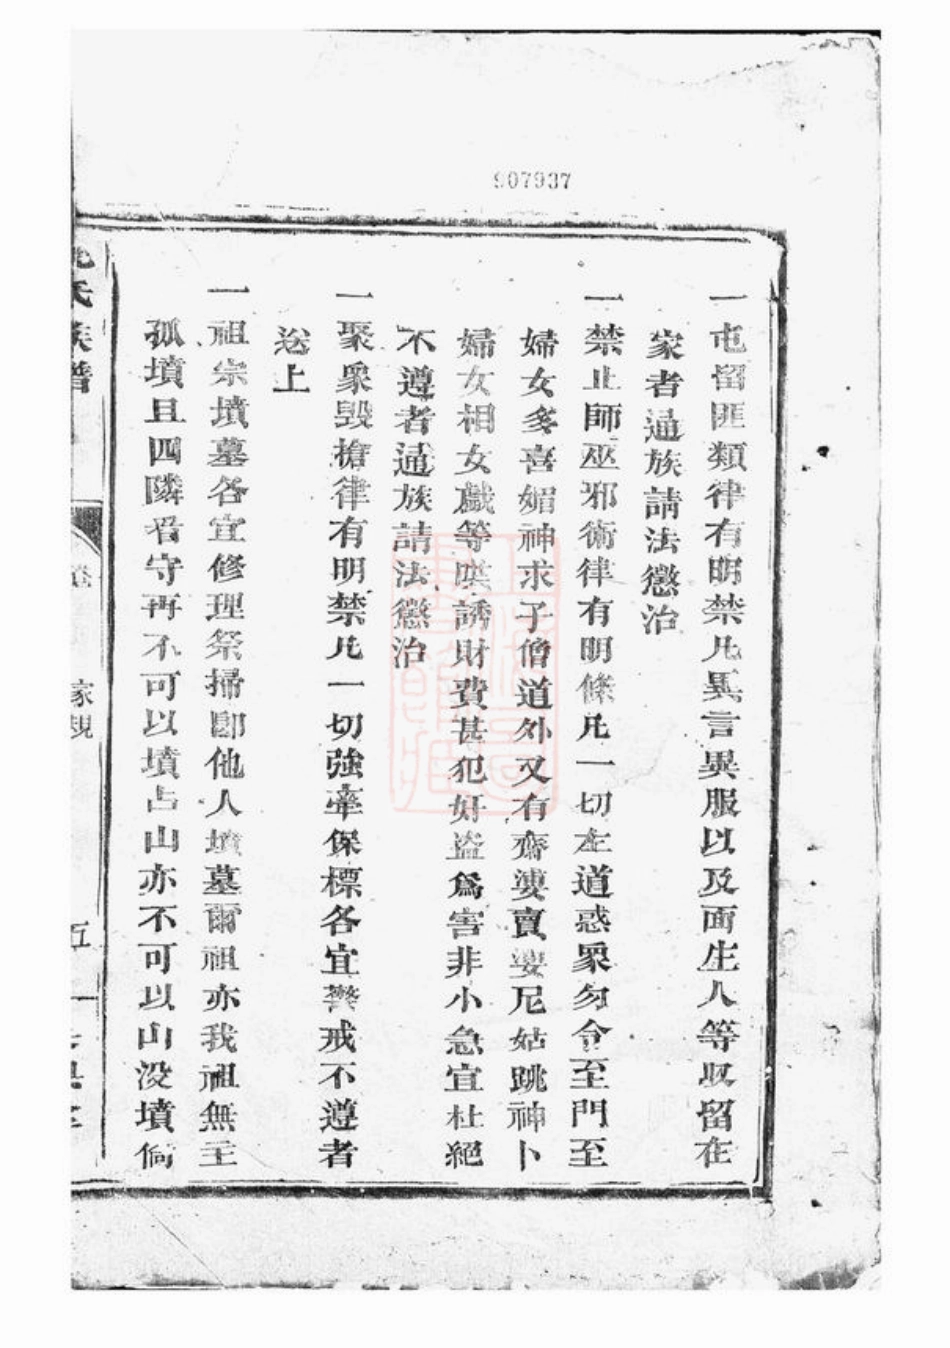 907937
一屯留匪類律有明禁凡異言異服以及面生人等收留在
家者通族請法懲治
一禁止師巫邪術律有明條凡一切左道惑衆勿令至門至
婦女多喜媚神求子僧道外又有齋婆賣婆尼姑跳神卜
婦女相女戲等哄誘財費甚犯奸盗爲害非小急宜杜絕
不遵者通族請法懲治
一聚衆毁搶律有明禁凡一切強牽保標各宜警戒不遵者
送上
一祖宗墳墓各宜修理祭掃卽他人墳墓爾祖亦我祖無主
孤墳且四隣看守再不可以墳占山亦不可以山没墳倘
氏族譜
家規
五